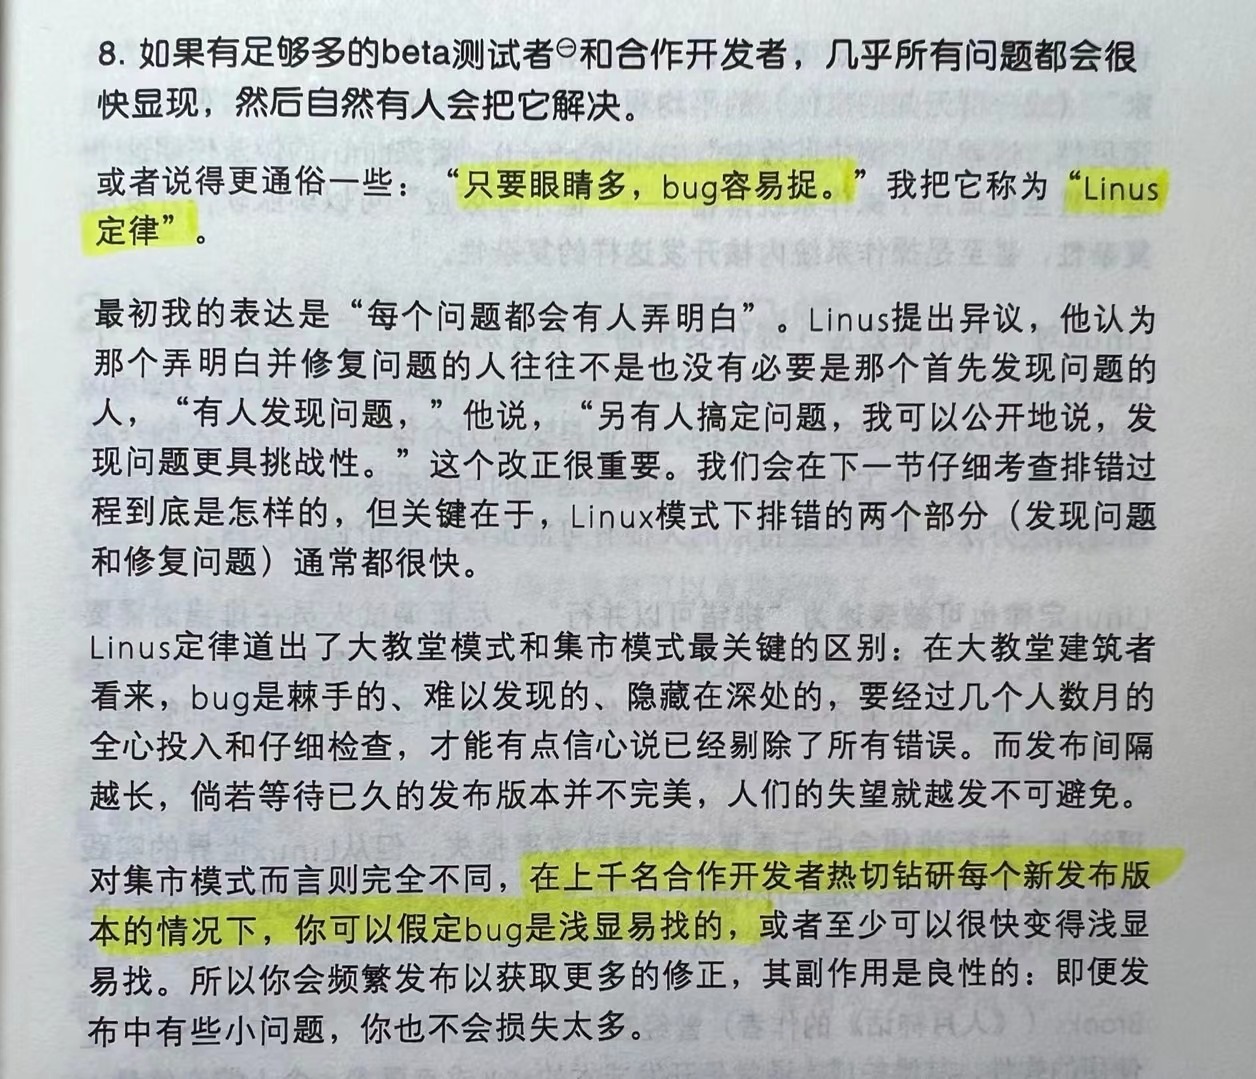 8. 如果有足够多的beta测试者㊀和合作开发者，几乎所有问题都会很
快显现，然后自然有人会把它解决。
或者说得更通俗一些：“只要眼睛多，bug容易捉。”我把它称为“Linus
定律”。
最初我的表达是“每个问题都会有人弄明白”。Linus提出异议，他认为
那个弄明白并修复问题的人往往不是也没有必要是那个首先发现问题的
人，“有人发现问题，”他说，“另有人搞定问题，我可以公开地说，发
现问题更具挑战性。”这个改正很重要。我们会在下一节仔细考查排错过
程到底是怎样的，但关键在于，Linux模式下排错的两个部分（发现问题
和修复问题）通常都很快。
Linus定律道出了大教堂模式和集市模式最关键的区别：在大教堂建筑者
看来，bug是棘手的、难以发现的、隐藏在深处的，要经过几个人数月的
全心投入和仔细检查，才能有点信心说已经剔除了所有错误。而发布间隔
越长，倘若等待已久的发布版本并不完美，人们的失望就越发不可避免。
对集市模式而言则完全不同，在上千名合作开发者热切钻研每个新发布版
本的情况下，你可以假定bug是浅显易找的，或者至少可以很快变得浅显
易找。所以你会频繁发布以获取更多的修正，其副作用是良性的：即便发
布中有些小问题，你也不会损失太多。